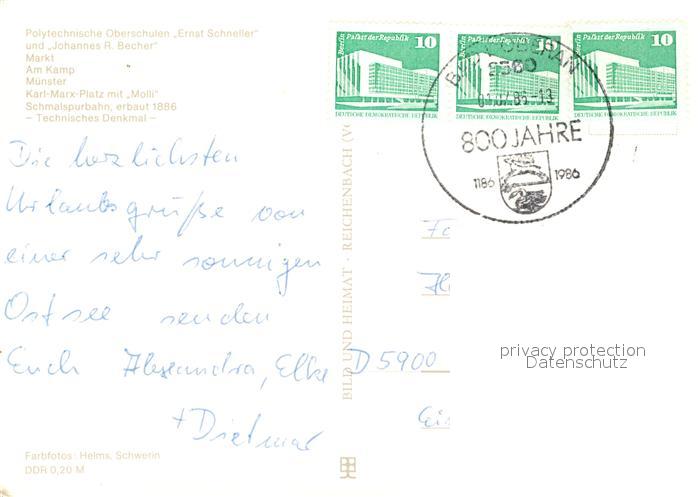 Polytechnische Oberschulen „Ernst Schneller"
und „Johannes R. Becher"
Markt
Am Kamp
Münster
Karl-Marx-Platz mit "Molli"
Schmalspurbahn, erbaut 1886
– Technisches Denkmal –
Die herzlichsten
Urlaubsgrüße von
einer sehr sonnigen
Ostsee senden
Euch Alexandra, Elke
+ Dietmar
Farbfotos: Helms, Schwerin
DDR 0,20 M
BILD UND HEIMAT · REICHENBACH
Berlin Palast der Republik 10
DEUTSCHE DEMOKRATISCHE REPUBLIK
Berlin Palast der Republik 10
DEUTSCHE DEMOKRATISCHE REPUBLIK
Berlin Palast der Republik 10
DEUTSCHE DEMOKRATISCHE REPUBLIK
BAD DOBERAN
2560
800 JAHRE
1186 1986
D 5900
privacy protection
Datenschutz